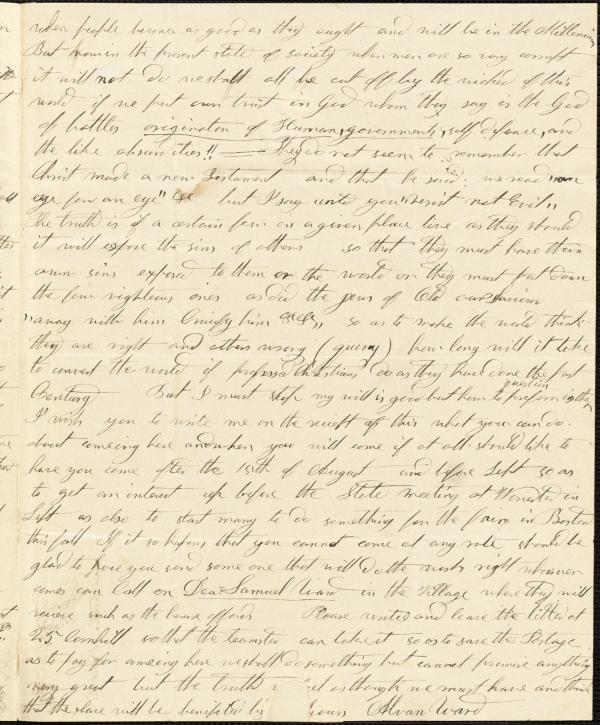 when people become as good as they ought and will be in the Millenium
But now in the present state of society when men are so very corrupt
it will not do we shall all be cut off by the wicked of this
world if we put our trust in God whom they say is the God
of battles originator of Human governments, self defence, and
the like absurdities!! They do not seem to remember that
Christ made a new Testament and that he said: we read "an
eye for an eye" &c but I say unto you "resist not Evil,,
the truth is if a certain few in a given place live as they should
it will expose the sins of others so that they must have their
own sins exposed to them or the world or they must put down
the few righteous ones as did the jews of Old our Saviour
"away with him Crucify him &c &c,, so as to make the world think
they are right and others wrong (query) how long will it take
to convert the world if professed Christians do as they have done the past
Century) But I must stop my will is good but how to perform is the
question
I wish you to write me on the receipt of this what you can do
about comeing here and when you will come if at all should like to
have you come after the 15th of August and before Sept so as
to get an interest up before the State meeting at Worcester in
Sept as also to start many to do something for the fair in Boston
this fall If it so hapens that you cannot come at any rate, should be
glad to have you send some one that will do the work right whoever
comes can Call on Dea Samuel Ward in the Village where they will
recieve such as the house affords Please write and leave the letter at
25 Cornhill so that the teamster can take it so as to save the Postage
as to pay for comeing here we shall do something but cannot promise anything
very great but the truth as though we must have and think
that the slave will be benefited by yours Alvan Ward